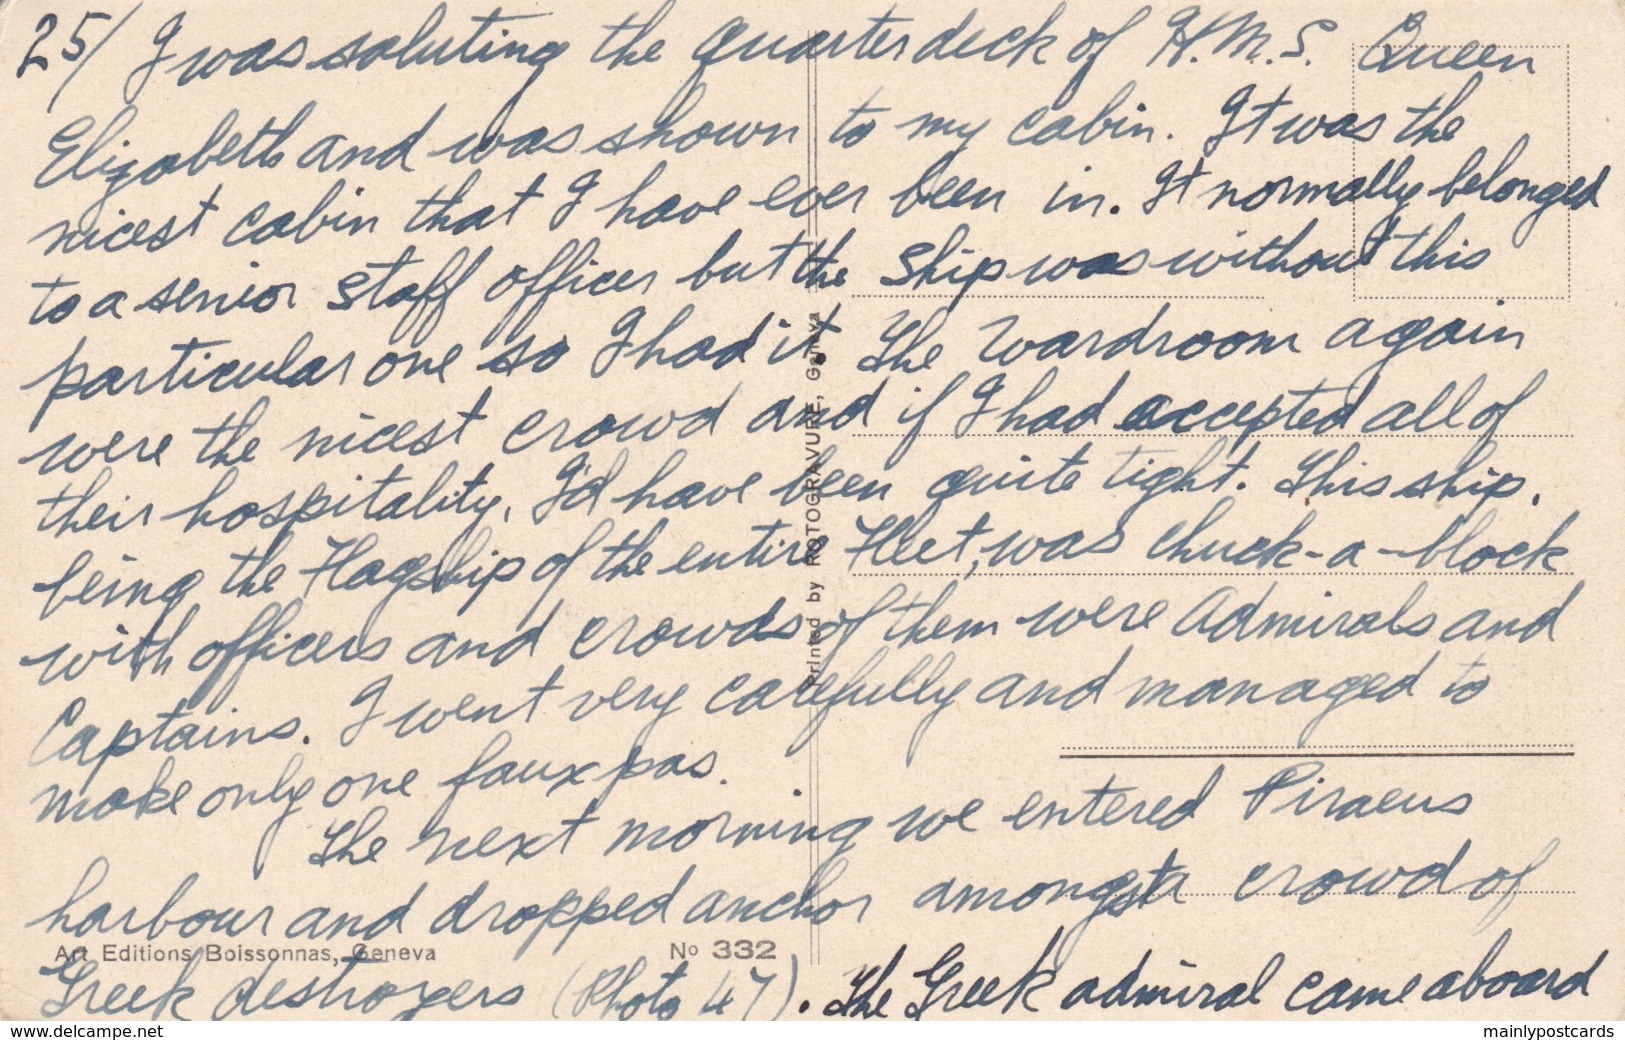 25/ I was saluting the quarterdeck of H.M.S. Queen
Elizabeth and was shown to my cabin. It was the
nicest cabin that I have ever been in. It normally belonged
to a senior staff officer but the ship was without this
particular one so I had it. The wardroom again
were the nicest crowd and if I had accepted all of
their hospitality, I'd have been quite tight. This ship,
being the Flagship of the entire Fleet, was chuck-a-block
with officers and crowds of them were Admirals and
Captains. I went very carefully and managed to
make only one faux pas.
The next morning we entered Piraeus
harbour and dropped anchor amongst a crowd of
Greek destroyers (Photo 47). The Greek admiral came aboard
Printed by ROTOGRAVURE, Geneva
Art Editions Boissonnas, Geneva
No 332
www.delcampe.net
mainlypostcards